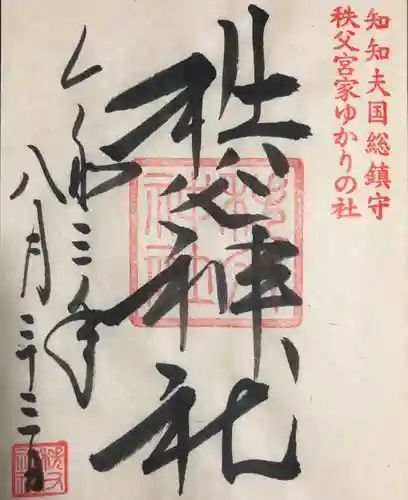 知知夫国総鎮守
秩父宮家ゆかりの社
秩父神社
令和三年
八月二十二日
秩父神社